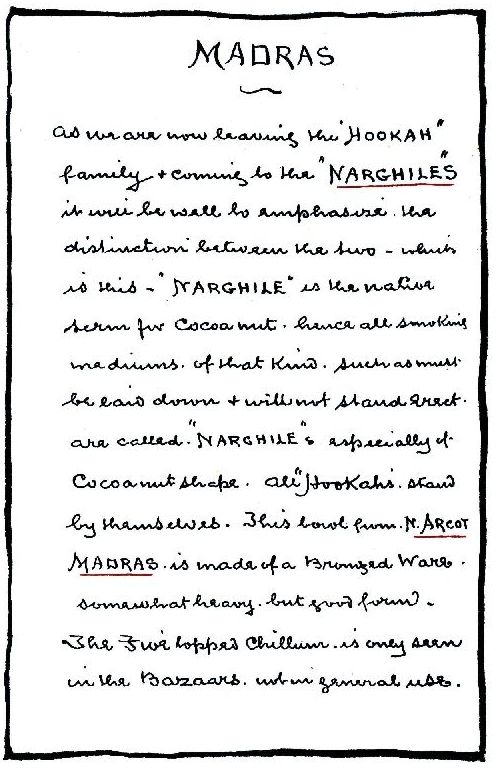 MADRAS
As we are now leaving the "HOOKAH"
family + coming to the "NARGHILE"S
it will be well to emphasize. the
distinction between the two - which
is this - "NARGHILE" is the native
term for Cocoanut. hence all smoking
mediums. of that kind. such as must
be laid down + will not stand erect.
are called. "NARGHILE"s especially if
Cocoanut shape. All "Hookahs. stand
by themselves. This bowl from. N. ARCOT
MADRAS. is made of a Bronzed Ware.
somewhat heavy. but good form.
The Five topped Chillum. is only seen
in the Bazaars. not in general use.